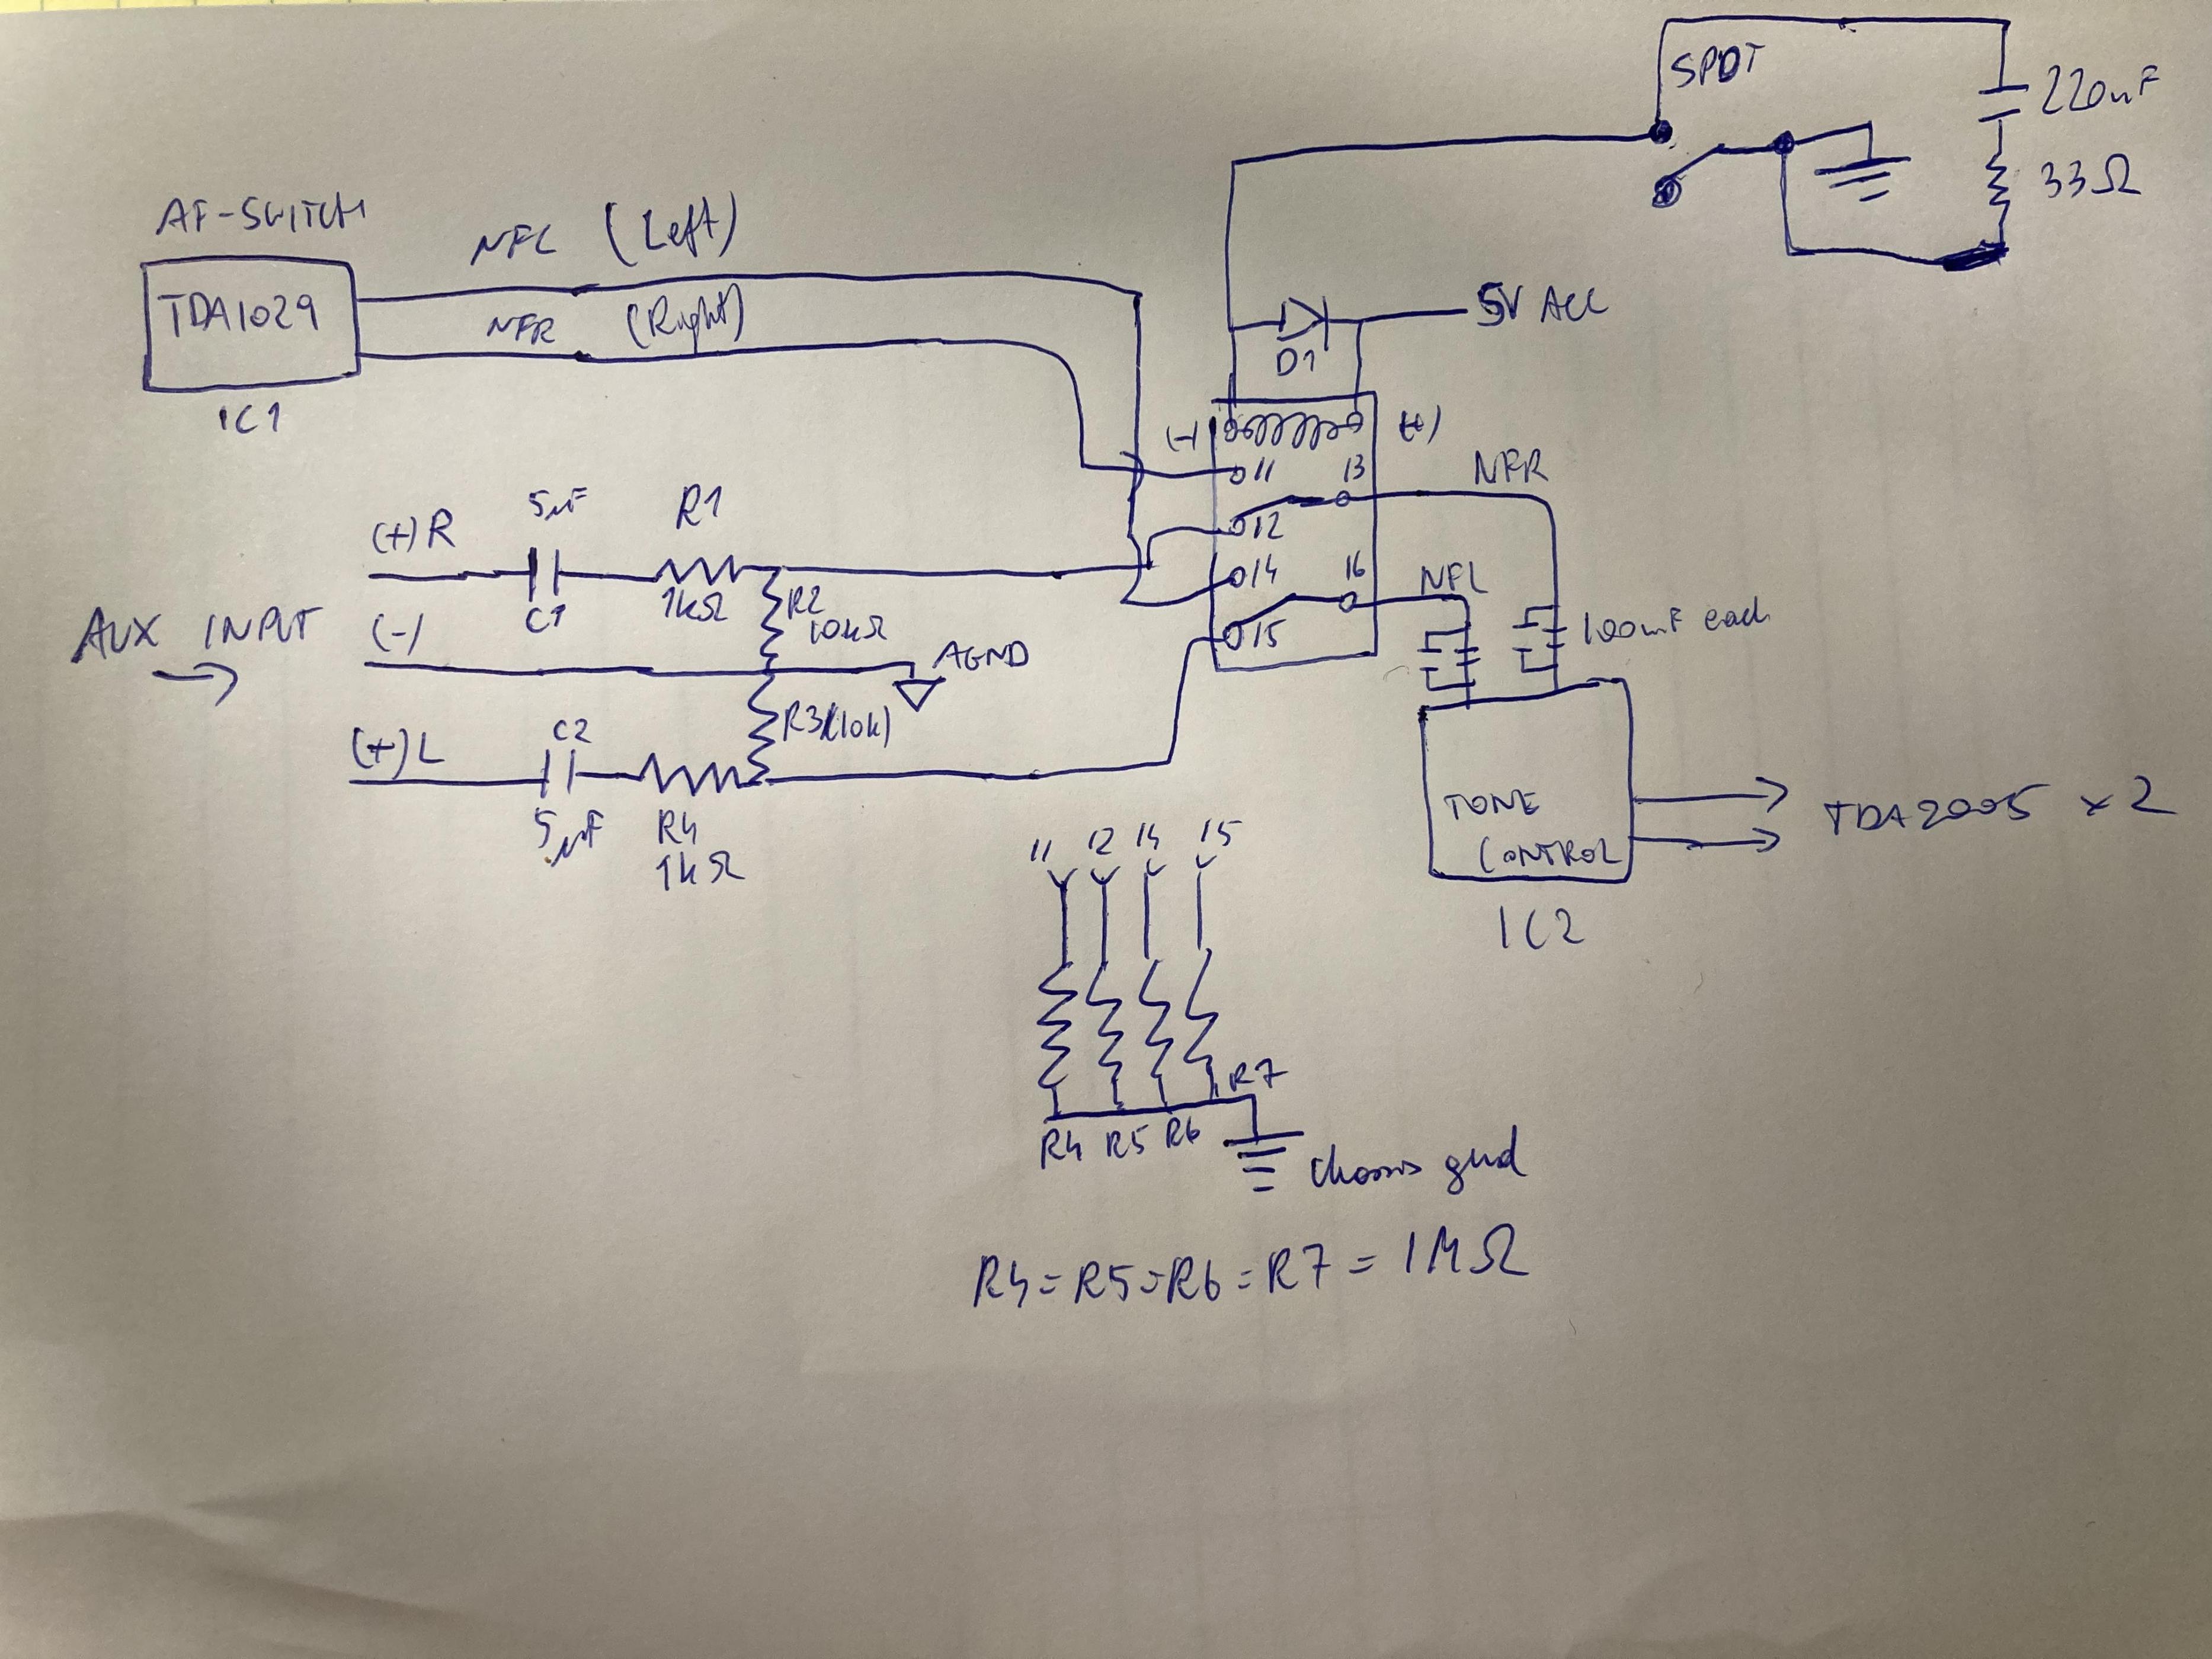 SPDT
220nF
33Ω
AF-SWITCH
TDA1029
IC1
NFL (Left)
NFR (Right)
5V ACC
D1
(-)
(+)
11
13
NFR
12
14
16
NFL
15
100nF each
AUX INPUT
(+)R
5µF
C1
R1
1kΩ
R2
10kΩ
(-)
AGND
R3(10k)
(+)L
C2
5µF
R4
1kΩ
TONE
CONTROL
IC2
TDA2005 x2
11 12 14 15
R4 R5 R6 R7
Chassis gnd
R4=R5=R6=R7=1MΩ